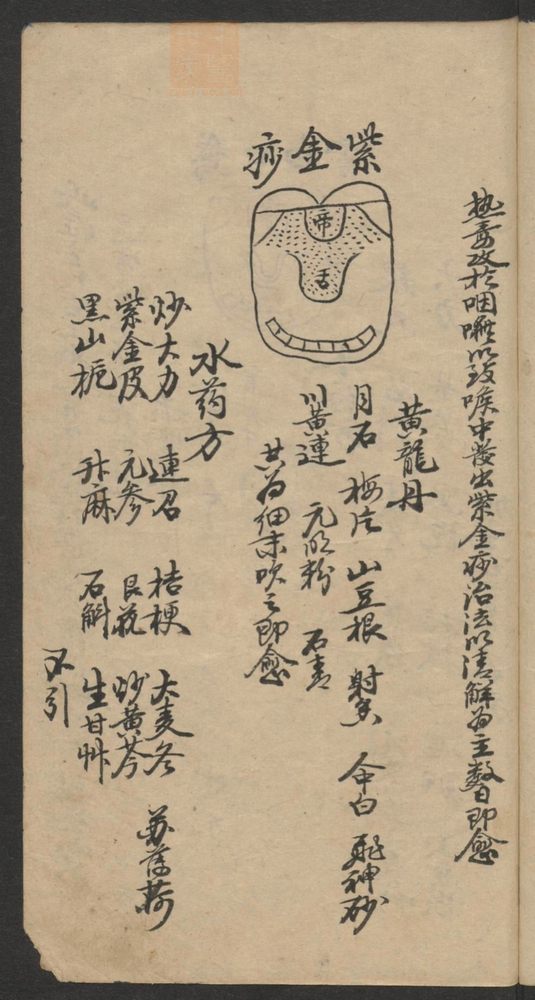 熱毒攻於咽喉以致喉中發出紫金痧治法以清解為主數日即愈
紫金痧
帝
舌
黃龍丹
月石 梅片 山豆根 射香 人中白 飛神砂
川黃連 元明粉 石青
共為細末吹之即愈
水药方
炒大力 連召 桔梗 大麦冬 苏薄荷
紫金皮 元參 艮花 炒黃芩
黑山梔 升麻 石斛 生甘艸
不引